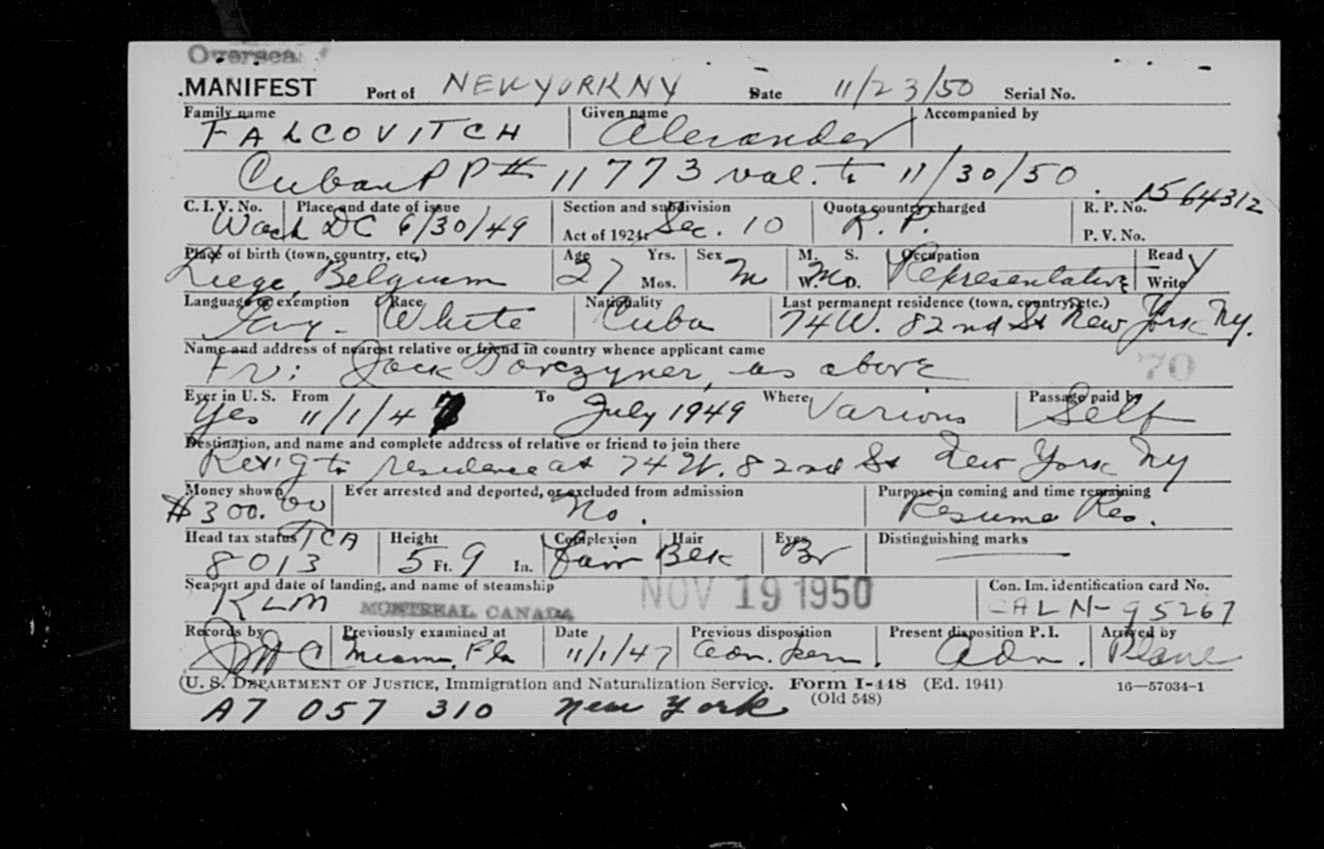 Overseas
MANIFEST Port of NEW YORK NY Date 11/23/50 Serial No.
Family name Given name Accompanied by
FALCOVITCH Alexander
Cuban PP# 11773 val. to 11/30/50.
1564312
C. I. V. No. Place and date of issue Section and subdivision Quota country charged R. P. No.
Wash DC 6/30/49 Act of 1924: Sec. 10 R.P. P. V. No.
Place of birth (town, country, etc.) Age Yrs. Sex M. S. Occupation Read
Liege, Belgium 27 Mos. M W. D. Representative Write
Language or exemption Race Nationality Last permanent residence (town, country, etc.)
Eng- White Cuba 74 W. 82nd St New York NY.
Name and address of nearest relative or friend in country whence applicant came
Fr: Jack Torczyner, as above 70
Ever in U. S. From To Where Passage paid by
Yes 11/1/47 July 1949 Various Self
Destination, and name and complete address of relative or friend to join there
Ret'g to residence at 74 W. 82nd St New York NY
Money shown Ever arrested and deported, or excluded from admission Purpose in coming and time remaining
$300.00 No. Resume Res.
Head tax status TCA Height Complexion Hair Eyes Distinguishing marks
8013 5 Ft. 9 In. Fair Blk Br
Seaport and date of landing, and name of steamship Con. Im. identification card No.
KLM MONTREAL CANADA NOV 19 1950 CALN-95267
Records by Previously examined at Date Previous disposition Present disposition P. I. Arrived by
Miami, Fla 11/1/47 Adm. perm. Adm. Plane
U. S. DEPARTMENT OF JUSTICE, Immigration and Naturalization Service. Form I-448 (Ed. 1941) 16—57034-1
(Old 548)
A7 057 310 New York